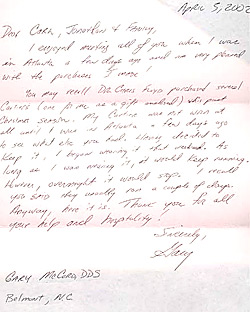 April 5, 2002
Dear Cora, Jonathan & Fawny,
I enjoyed meeting all of you when I was
in Atlanta a few days ago and am very pleased
with the purchases I made.
You may recall Dr. Chris Kuyo purchased several
Cortinas (one for me as a gift weekend) this past
Corvina session. My Cortina was not worn at
all until I was in Atlanta a few days ago
to see what else you had. Having decided to
keep it, I began wearing it that weekend. As
long as I was wearing it, it would keep running.
However, overnight it would stop. I recall
you said they usually run a couple of days.
Anyway, here it is. Thank you for all
your help and hospitality!
Sincerely,
Gary
Gary McCord, DDS
Belmont, N.C